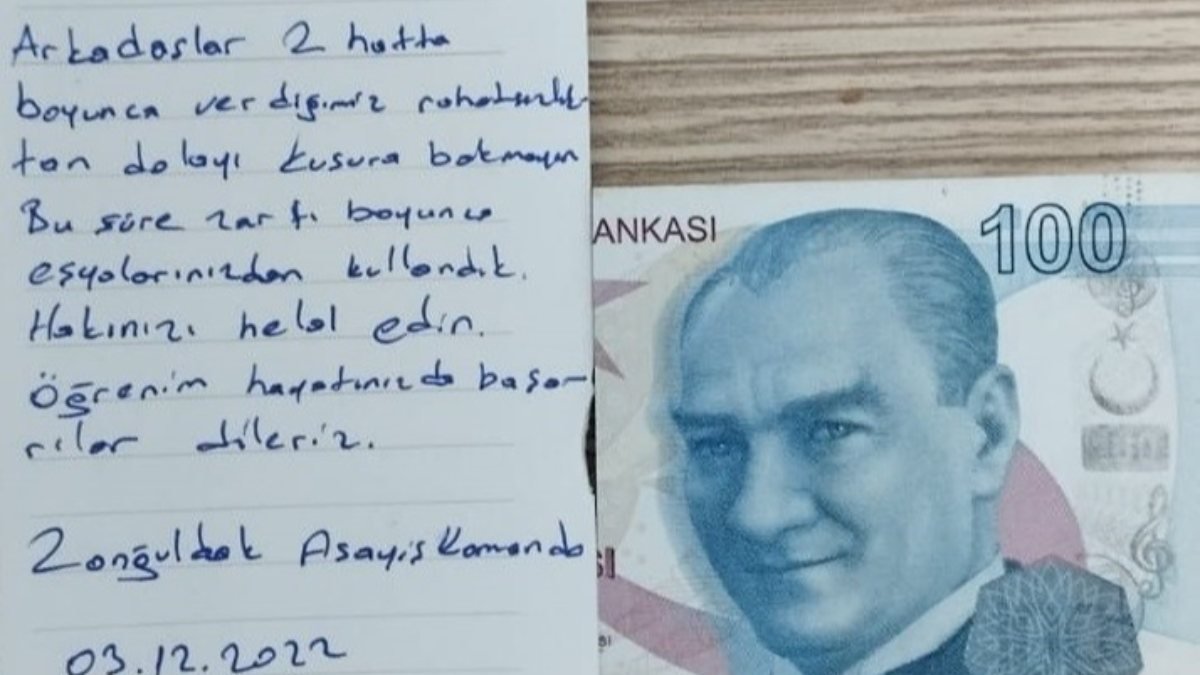 Arkadaşlar 2 hafta
boyunca verdiğimiz rahatsızlık
tan dolayı kusura bakmayın
Bu süre zarfı boyunca
eşyalarınızdan kullandık.
Hakınızı helal edin.
Öğrenim hayatınızda başa-
rılar dileriz.
Zonğuldak Asayiş Komando
03.12.2022
ANKASI
100